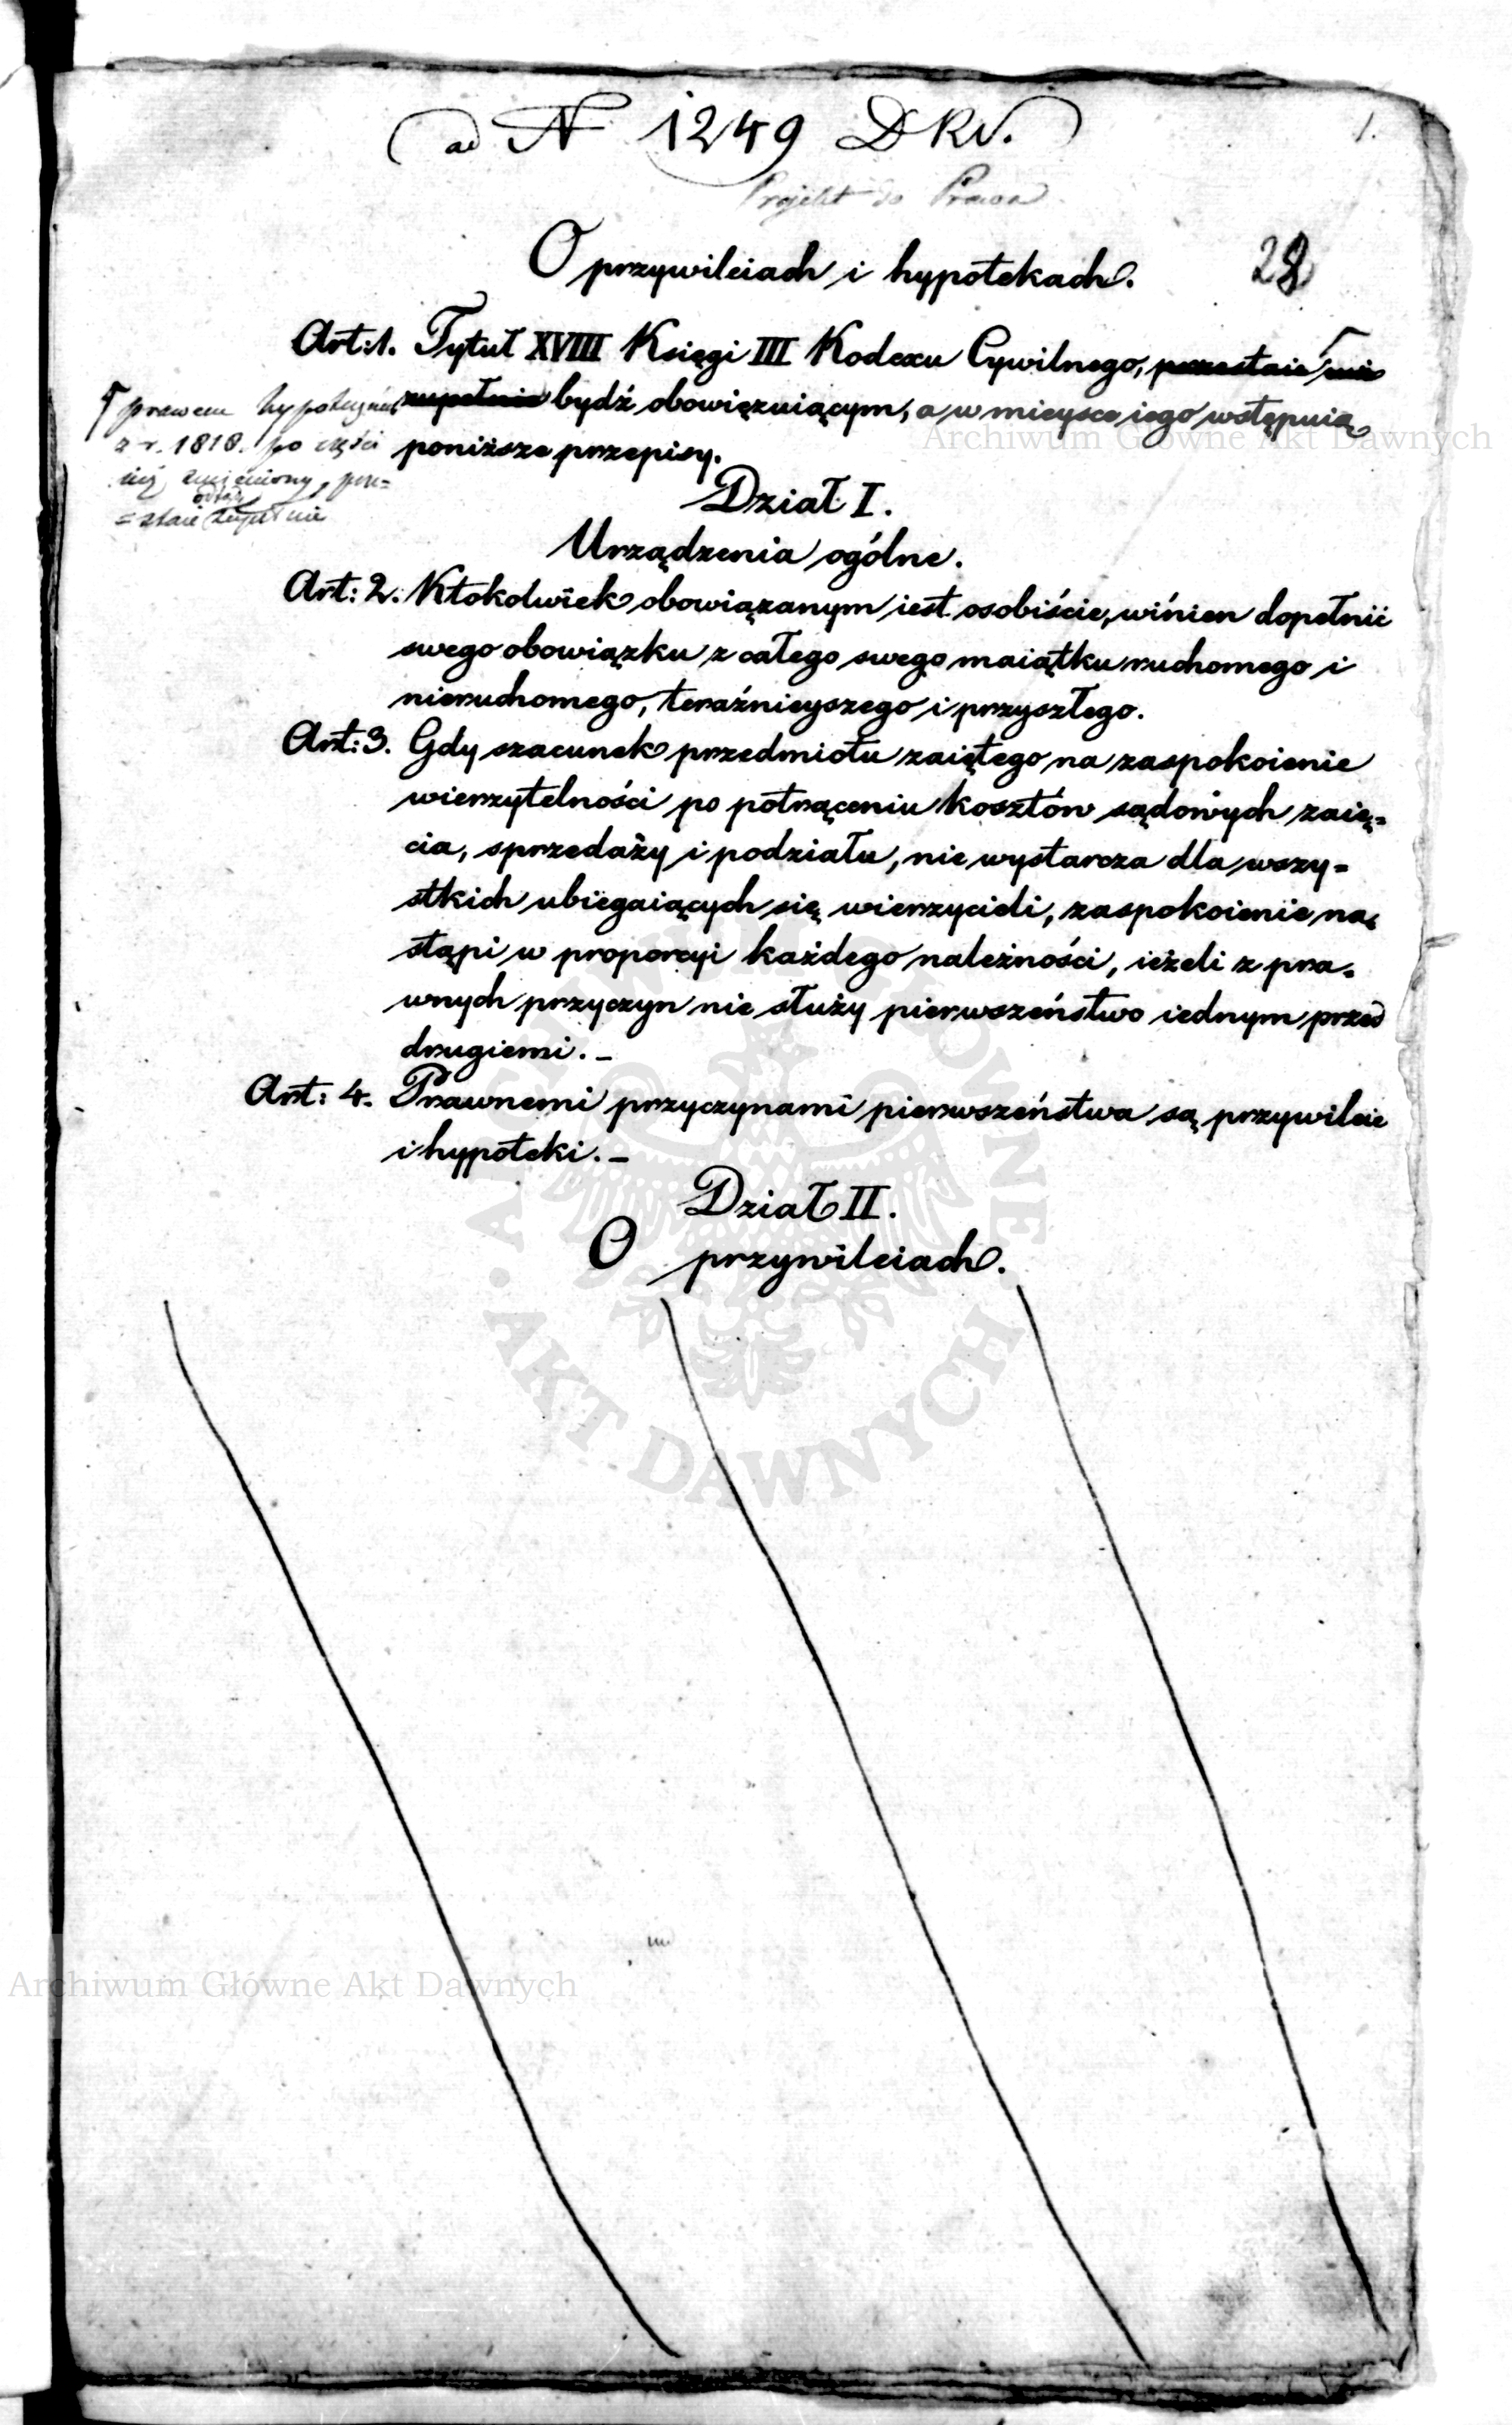 ad N 1249 DRN.
1.
Projekt do Prawa
O przywileiach i hypotekach.
28
Art: 1. Tytuł XVIII Księgi III Kodexu Cywilnego, przestaie
zupełnie bydź obowięzuiącym, a w mieysce iego wstępuią
poniższe przepisy.
prawem hypotecznem
z r. 1818. po części
iuż zmieniony, prze=
odtąd
=staie zupełnie
Dział I.
Urządzenia ogólne.
Art: 2. Ktokolwiek obowiązanym iest osobiście, winien dopełnić
swego obowiązku z całego swego maiątku ruchomego i
nieruchomego, teraźnieyszego i przyszłego.
Art: 3. Gdy szacunek przedmiotu zaiętego na zaspokoienie
wierzytelności po potrąceniu kosztów sądowych zaię=
cia, sprzedaży i podziału, nie wystarcza dla wszy=
stkich ubiegaiących się wierzycieli, zaspokoienie na=
stąpi w proporcyi każdego należności, ieżeli z pra=
wnych przyczyn nie służy pierwszeństwo iednym przed
drugiemi. –
Art: 4. Prawnemi przyczynami pierwszeństwa są przywileie
i hypoteki. –
Dział II.
O przywileiach.
Archiwum Główne Akt Dawnych
ARCHIWUM GŁÓWNE
AKT DAWNYCH
Archiwum Główne Akt Dawnych